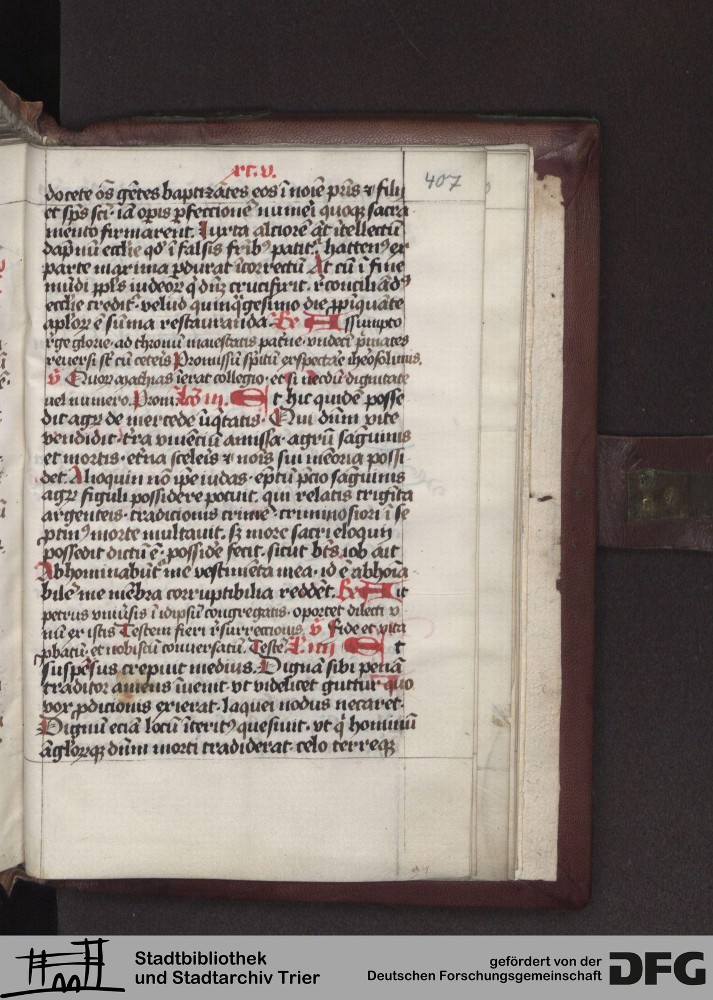 rc. v.
407
docete o̅s ge̅tes baptiza̅tes eos i̅ noi̅e pr̅is ⁊ filij
et sp̅s sc̅i · ia̅ op̅is ꝑfeccione̅ nume̅i quoqꝫ sacra
mento firmarent. Iuxta alciore̅ at̅ i̅tellectu̅
dap̅nu̅ eccl̅ie qd̅ i̅ falsis fr̅ibꝰ patit᷑.
parte maxima ꝑdurat i̅correctu̅ At cu̅ i̅ fine
mu̅di ppl̅s iudeoꝝ q̇ dn̅ꝫ crucifixit · r̅conciliādꝰ
eccl̅ie credit᷑ · velud quinq̈gesimo die ꝓpi̅quāte
ap̅loꝝ e̅ su̅ma restauranda. Re Assumpto
r̅ge glorie · ad thronu̅ maiestatis patr̅ne · vndeci̅ p̅mates
reuersi st̅ cu̅ ceteis Promissu̅ sp̅itu̅ exspecta̅e iherosolimis.
v̅ Quoꝝ mathias i̅erat collegio · et si necdu̅ dignitate
uel numero. Prom Lc̅o iij. Et hic quide̅ posse
dit agꝝ de mercede i̅iq̇tatis. Qui du̅m vite
vendidit · t̅ra viue̅ciu̅ amissa · agru̅ sag̅uinis
et mortis · et̅na sceleis ⁊ no̅is sui me̅oria possi
det. Alioquin no̅ ip̅e iudas · eptu̅ p̅cio sag̅uinis
agꝝ figuli possidere potuit. qui relatis triginta
argenteis · tradicionis crime̅ · criminosiori i̅ se
ptin̅ꝰ morte multauit. sꝫ more sacri eloquij
possedit dictu̅ e̅ · posside̅ fecit. sicut bt̅s iob ait
Abhominabūt᷑ me vestime̅ta mea · id e̅ abhoi̅a
bile̅ me me̅bra corruptibilia redde̅t. Re Ait
petrus vniu̅sis i̅ idipsu̅ congregatis · oportet dilecti v
nu̅ ex istis Testem fieri r̅surreccionis v̅ Fide et vita
ꝓbatu̅ · et nobiscu̅ conuersatu̅. Teste̅ L iiij Et
suspe̅sus crepuit medius. Digna̅ sibi pena̅
traditor amens i̅uenit · vt videlicet guttur quo
vox ꝓdicionis exierat · laquei nodus necaret ·
Dignu̅ ecia̅ locu̅ i̅teritꝰ quesiuit · vt q̇ hominu̅
a̅gloꝝqꝫ du̅m morti tradiderat · celo terreqꝫ
Stadtbibliothek
und Stadtarchiv Trier
gefördert von der
Deutschen Forschungsgemeinschaft DFG